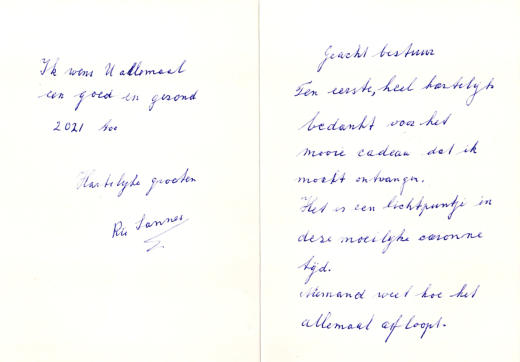 Ik wens U allemaal
een goed en gezond
2021 toe
Hartelijke groeten
Ria Sanner
Geacht bestuur
Ten eerste, heel hartelijk
bedankt voor het
mooie cadeau dat ik
mocht ontvangen.
Het is een lichtpuntje in
deze moeilijke coronne
tijd.
Niemand weet hoe het
allemaal afloopt.